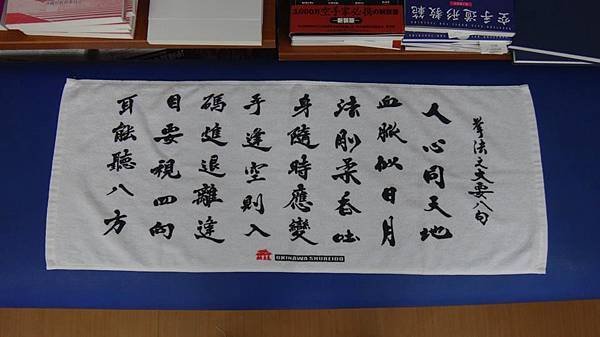 空手道形教範
拳法之大要八句
人心同天地
血脈似日月
法剛柔吞吐
身隨時應變
手逢空則入
碼進退離逢
目要視四向
耳能聽八方
OKINAWA SHUREIDO